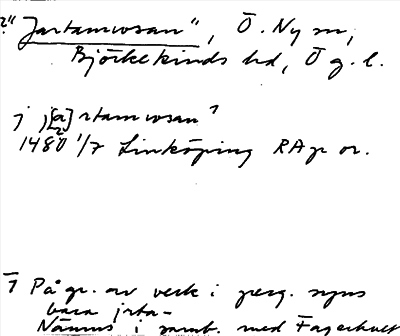 ?"Jartamosan", Ö. Ny sn,
Björkekinds hd, Ög. l.
j j[a]rtamosan ¹
1480 1/7 Linköping RAp or.
1 På gr. av veck i perg. syns
bara jrta-
Nämns i samb. med Fagerhult